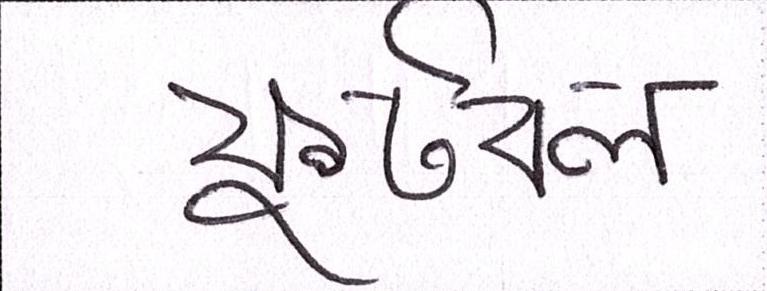 ফুটবল